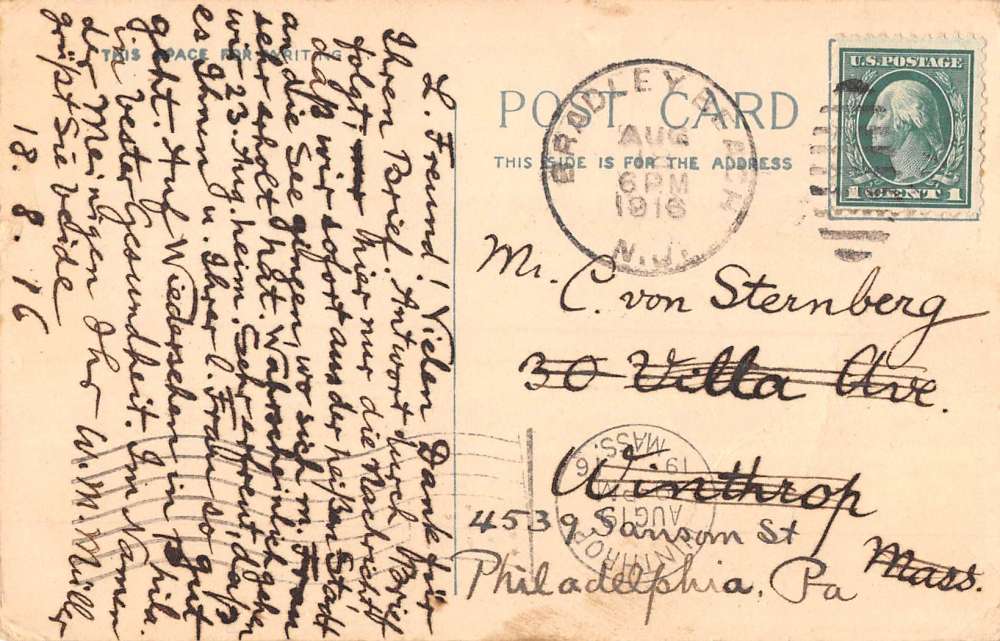 THIS SPACE FOR WRITING
L. Freund! Vielen Dank für
Ihren Brief. Antwort durch Brief
folgt, hier nur die Nachricht
daß wir sofort aus der heißen Stadt
an die See gingen, wo sich m. Frau
sehr erholt hat. Wahrscheinlich gehen
wir 23. Aug. heim. Sehr erfreut, daß
es Ihnen u. Ihrer l. Frau so gut
geht. Auf Wiedersehen in Phila.
in bester Gesundheit. Im Namen
der Meinigen Ihr W. M.
grüßt Sie beide
18. 8. 16
POST CARD
THIS SIDE IS FOR THE ADDRESS
BRADLEY
AUG
6 PM
1916
N.J.
U.S. POSTAGE
1 CENT 1
Mr. C. von Sternberg
30 Villa Ave.
Winthrop
Mass.
4539 Sansom St
Philadelphia, Pa
WINTHROP
AUG 19
MASS.